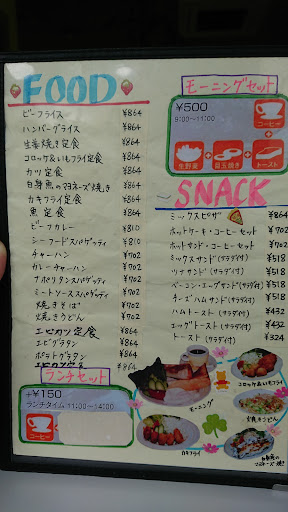 FOOD
ビーフライス ¥864
ハンバーグライス ¥864
生姜焼き定食 ¥864
コロッケ&いもフライ定食 ¥864
カツ定食 ¥864
白身魚のマヨネーズ焼き ¥864
カキフライ定食 ¥864
魚定食 ¥864
ビーフカレー ¥810
シーフードスパゲッティ ¥810
チャーハン ¥702
カレーチャーハン ¥702
ナポリタンスパゲティ ¥702
ミートソーススパゲティ ¥702
焼きそば ¥702
焼きうどん ¥702
エビカツ定食 ¥864
エビグラタン ¥864
ポテトグラタン ¥864
¥864
ランチセット
+¥150
ランチタイム 11:00~14:00
コーヒー
モーニングセット
¥500
9:00~11:00
コーヒー
生野菜
目玉焼き
トースト
SNACK
ミックスピザ ¥864
ホットケーキ・コーヒーセット ¥702
ホットサンド・コーヒーセット ¥702
ミックスサンド(サラダ付) ¥518
ツナサンド(サラダ付) ¥518
ベーコン・エッグサンド(サラダ付) ¥518
チーズハムサンド(サラダ付) ¥518
ハムトースト(サラダ付) ¥432
エッグトースト(サラダ付) ¥432
トースト(サラダ付) ¥324
モーニング
コロッケ&いもフライ
焼きうどん
カキフライ
白身魚の
マヨネーズ焼き